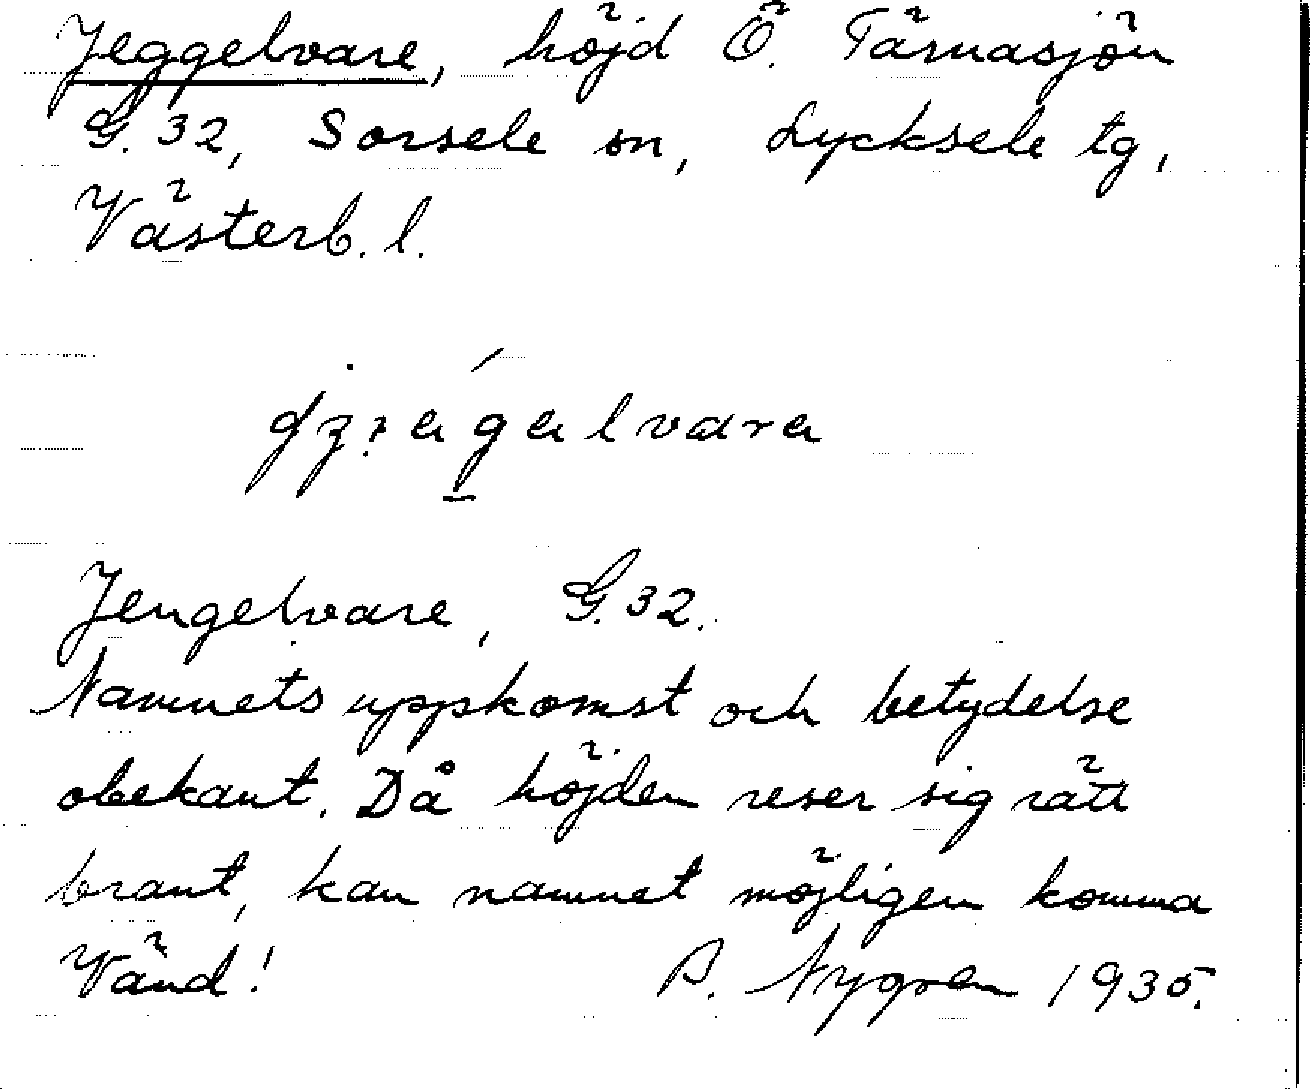 Jeggelvare, höjd Ö. Tärnasjön
G. 32, Sorsele sn, Lycksele tg,
Västerb. l.
Jengelvare, G. 32.
Namnets uppkomst och betydelse
obekant. Då höjden reser sig rätt
brant, kan namnet möjligen komma
Vänd! B. Nygren 1935.